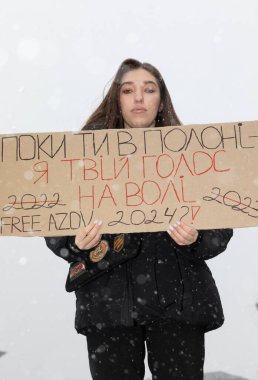 ПОКИ ТИ В ПОЛОНІ-
Я ТВІЙ ГОЛОС
2022 НА ВОЛІ 2023
FREE AZOV 2024?!